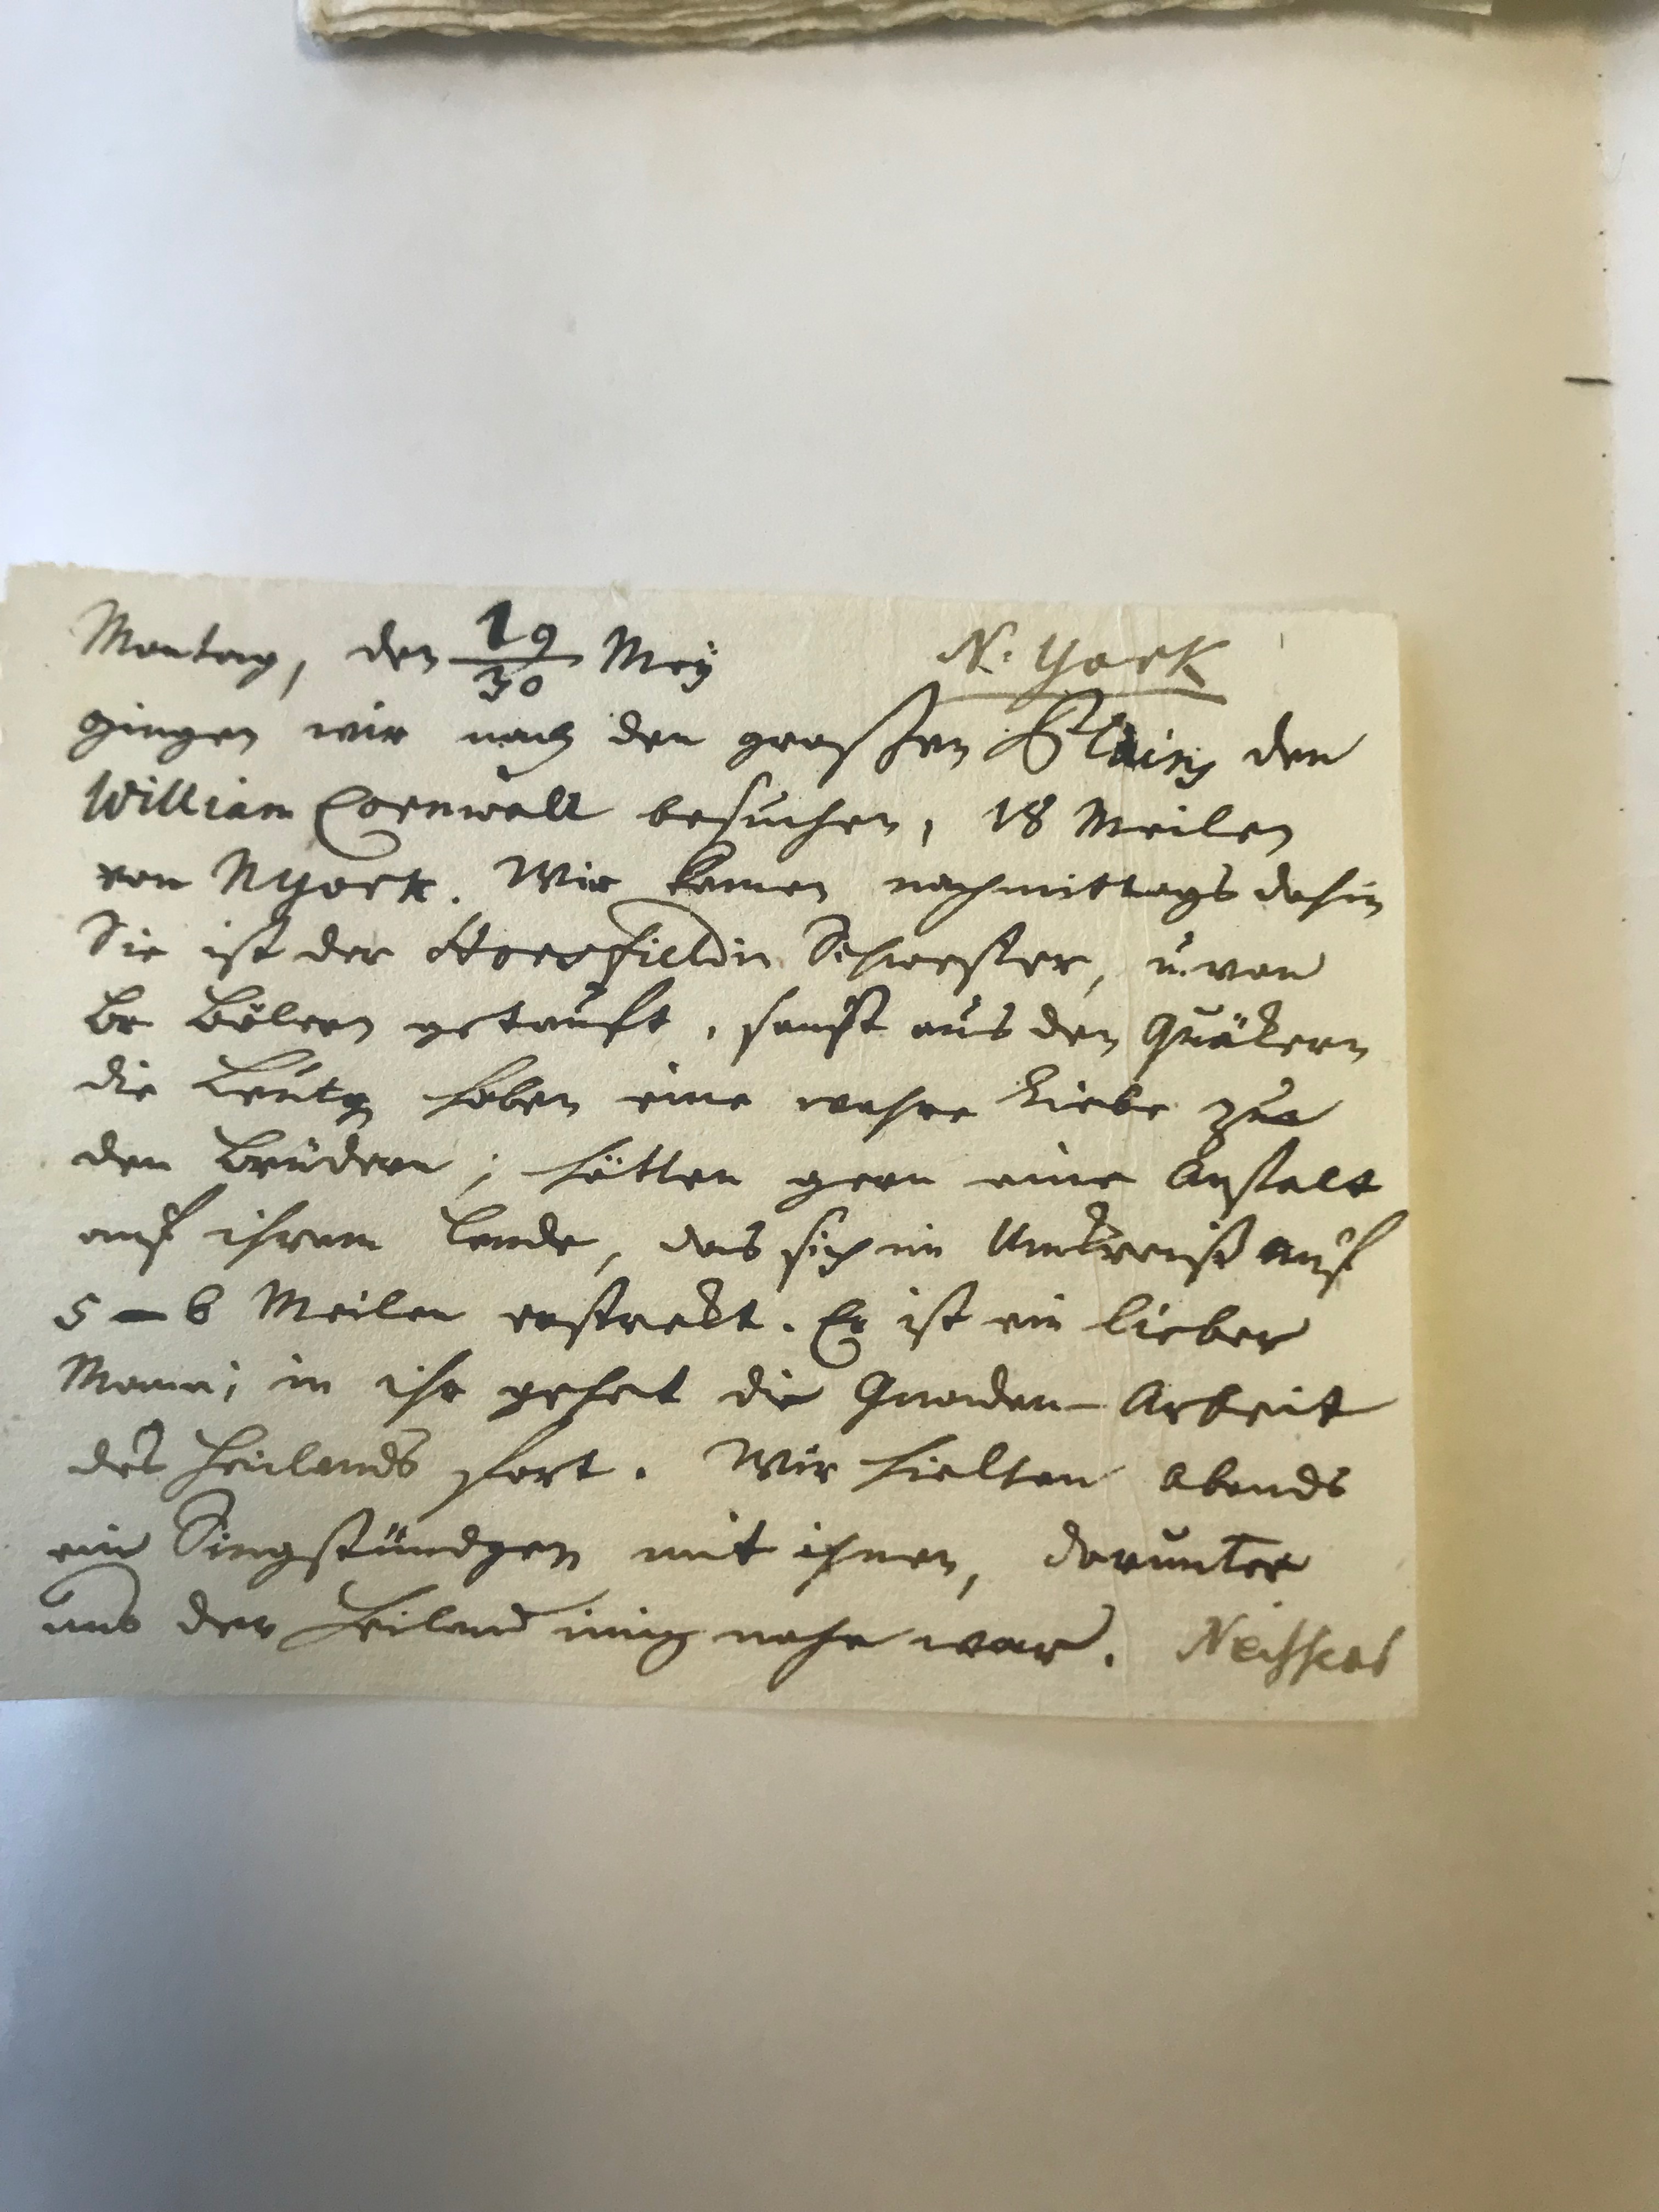 Montag, den 19/30 Mey N. York
gingen wir nach den grossen Plains den
William Cornwall besuchen, 18 Meilen
von NYork. Wir kamen nachmittags dahin
Sie ist der Horsfieldin Schwester, u. von
Br Bölern getauft, sonst aus den Quäkern
die Leutgen haben eine wahre Liebe zu
den Brüdern; hätten gern eine Anstalt
auf ihrem Lande, das sich im Umkreiß auf
5 – 6 Meilen erstrekt. Er ist ein lieber
Mann; in ihr gehet die Gnaden-Arbeit
des Heilands fort. Wir hielten abends
ein Singstündgen mit ihnen, darunter
uns der Heiland innig nahe war. Neissers